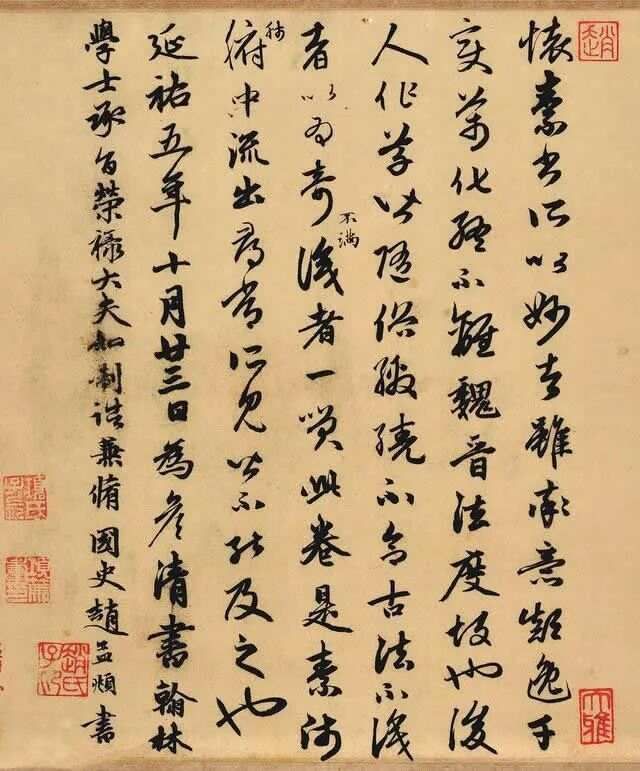 懷素書所以妙者雖率意顛逸千
變萬化終不離魏晉法度故也後
人作草皆隨俗繳繞不合古法不識
者以為奇不滿識者一笑此卷是素師
肺腑中流出尋常所見皆不能及之也
延祐五年十月廿三日為彥清書翰林
學士承旨榮祿大夫知制誥兼脩國史趙孟頫書
趙
大雅
趙氏子昂